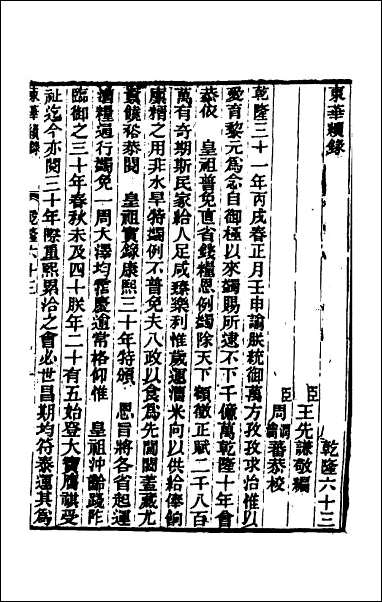 東華續錄　　乾隆六十三
臣王先謙敬編
臣周潤蕃恭校
乾隆三十一年丙戌春正月壬申諭朕統御萬方孜孜求治惟以
愛育黎元為念自御極以來蠲賜所逮不下千億萬乾隆十年會
恭依　皇祖普免直省錢糧恩例蠲除天下額徵正賦二千八百
萬有奇期斯民家給人足咸臻樂利惟歲運漕米向以供給俸餉
廩糈之用非水旱特蠲例不普免夫八政以食為先閭閻蓋藏尤
資饒裕恭閱　皇祖實錄康熙三十年特頒　恩旨將各省起運
漕糧逥行蠲免一周大澤均霑慶逾常格仰惟　皇祖沖齡踐阼
臨御之三十年春秋未及四十朕年二十有五始登大寶膺祺受
祉迄今亦閱三十年際重熙累洽之會必世昌期均符泰運其為
東華續錄　乾隆六十三